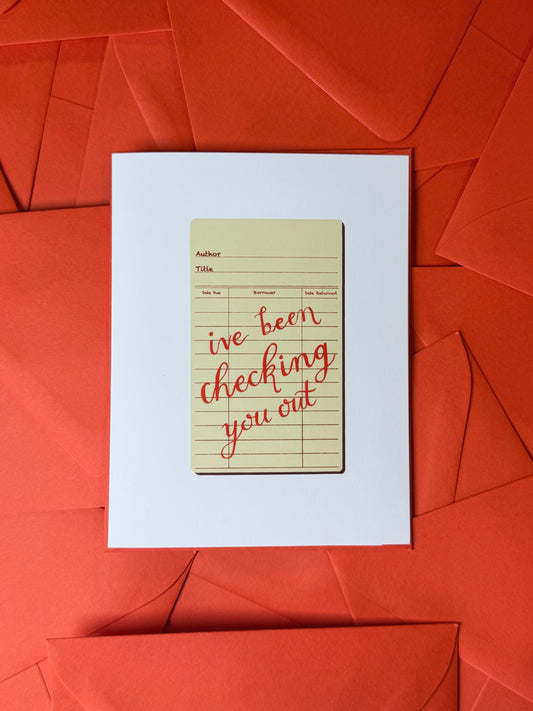 Author
Title
Date Due Borrower Date Returned
ive been
checking
you out